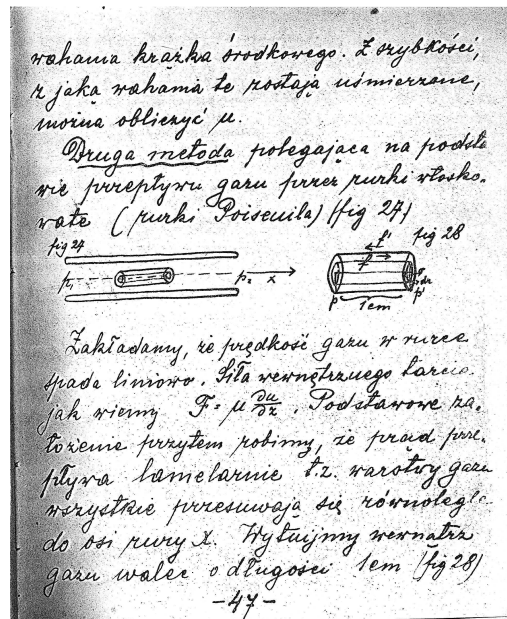 wahania krążka środkowego. Z szybkości,
z jaką wahania te zostają uśmierzone,
można obliczyć μ.
Druga metoda polegająca na podsta
wie przepływu gazu przez rurki włosko.
wate (rurki Poiseuila) (fig 27)
fig 27
p₁ p₂ x
fig 28
f' f
r dr
p 1cm p'
Zakładamy, że prędkość gazu w rurce
spada liniowo. Siła wewnętrznego tarcia
jak wiemy F = μ ∂u/∂z. Podstawowe za.
łożenie przytem robimy, że prąd prze.
pływa lamelarnie t.z. warstwy gazu
wszystkie przesuwają się równolegle
do osi rury X. Wytnijmy wewnątrz
gazu walec o długości 1cm (fig 28)
-47-